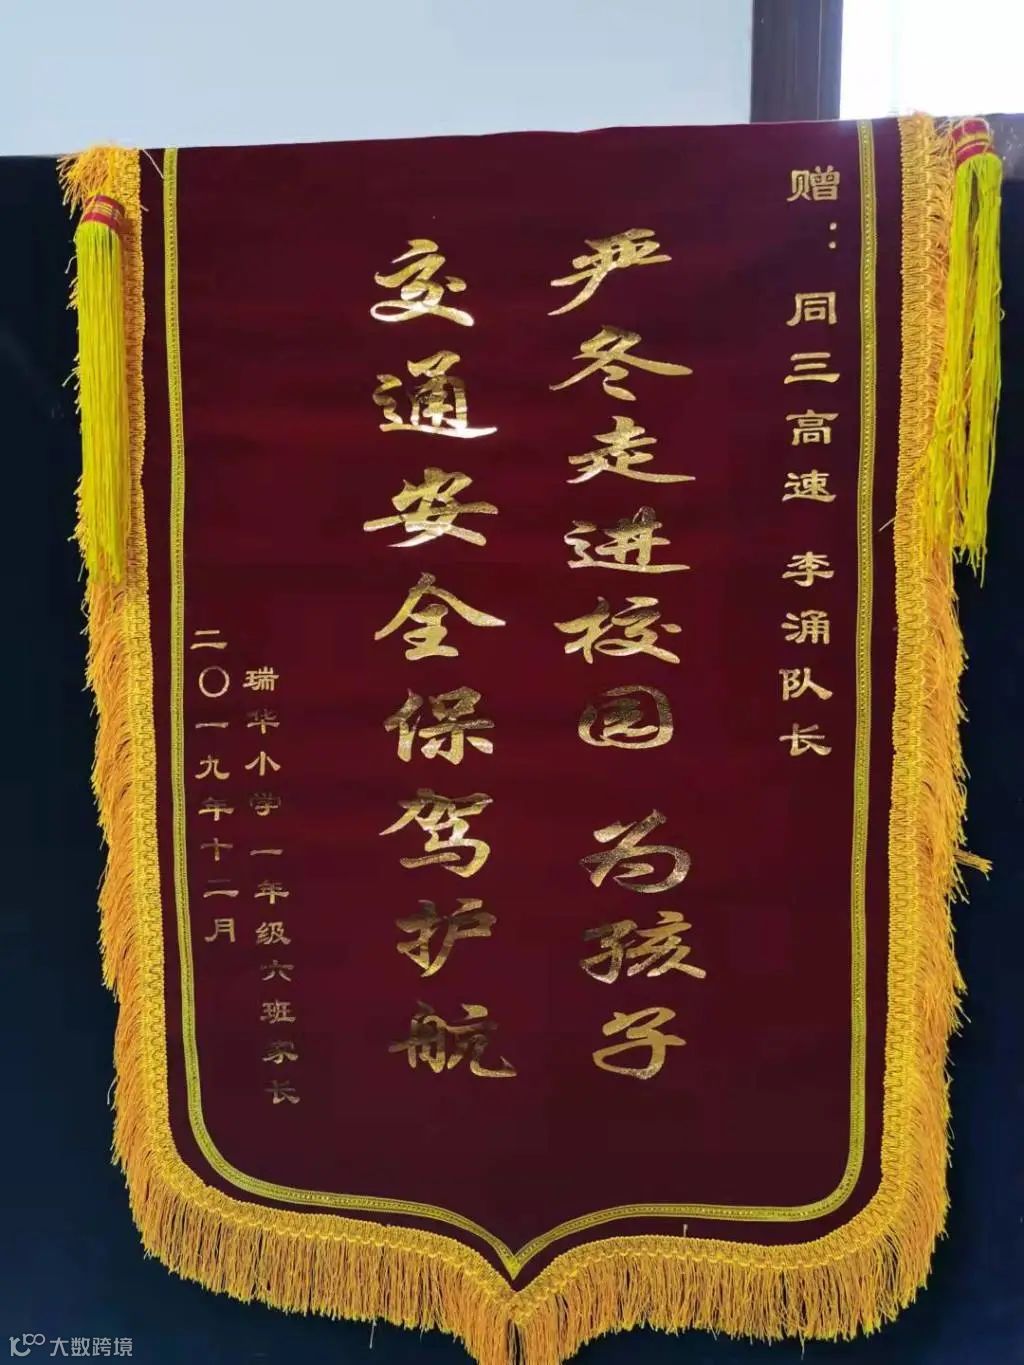 赠：同三高速 李涌队长
严冬走进校园 为孩子
交通安全保驾护航
瑞华小学一年级六班家长
二〇一九年十二月
大数跨境